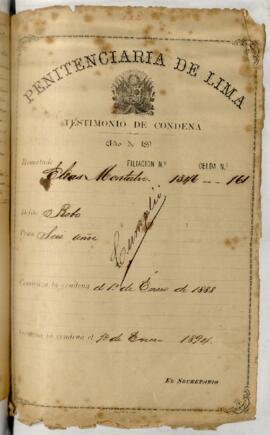 PENITENCIARIA DE LIMA
TESTIMONIO DE CONDENA
Año de 18
FILIACION N.º CELDA N.º
Rematado Elias Montalvo 1346 -- 161
Delito Robo
Pena Seis años
Cumplió
Comienza la condena el 1º de Enero de 1888
Termina la condena el 1º de Enero 1894.
EL SECRETARIO